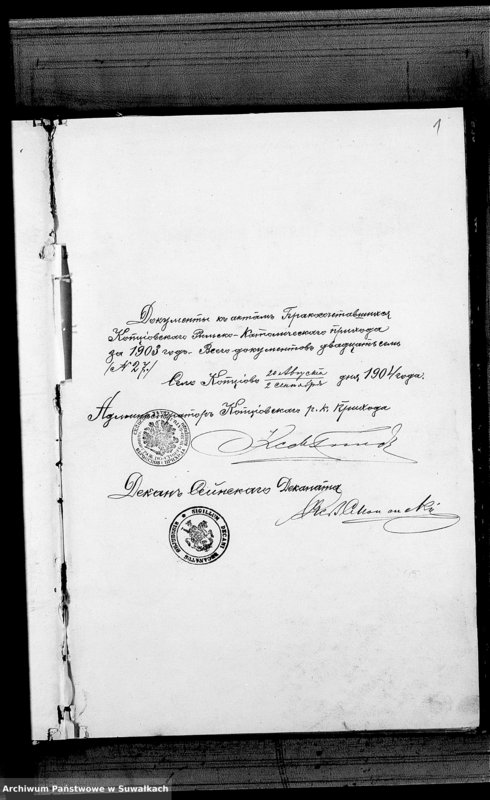 1
Документы къ актамъ Бракосочетавшихся
Копціовскаго Римско-Католическаго прихода
за 1903 годъ. Всего документовъ двадцать семь
/№ 27./
Село Копціово 20 Августа / 2 Сентября дня 1904 года.
Администраторъ Копціовскаго р. к. Прихода
Деканъ Сейнскаго Деканата
SIGILLUM DECANI DECANATUS
Archiwum Państwowe w Suwałkach